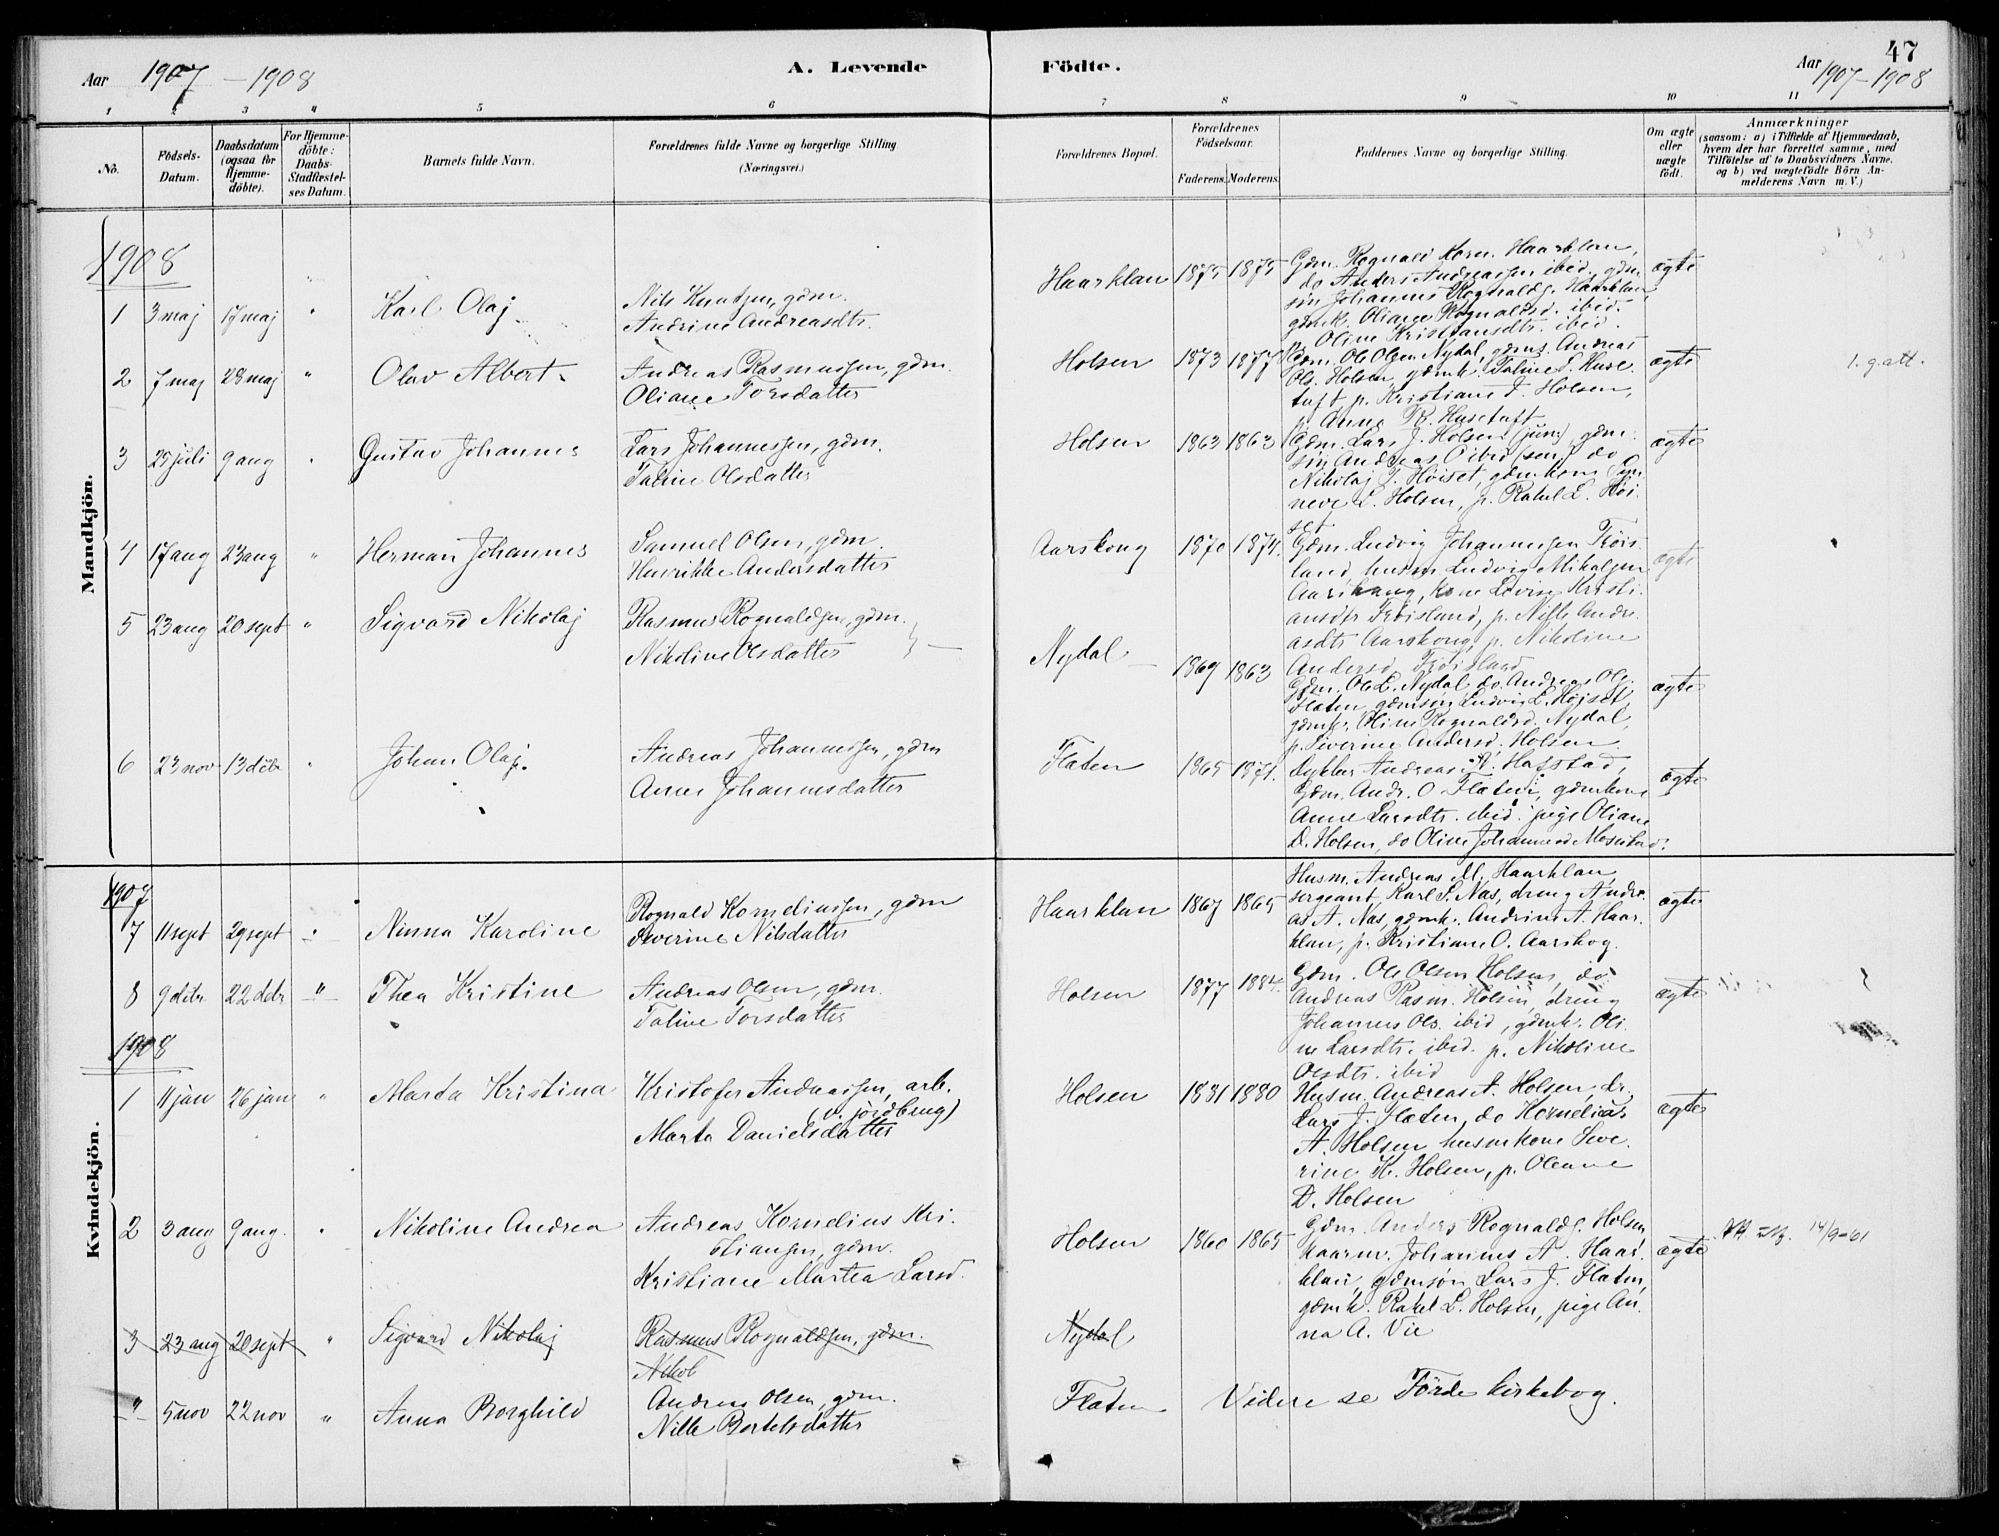 47
Aar 1907 – 1908
A. Levende Födte.
Aar 1907 – 1908
1 2 3 4 5 6 7 8 9 10 11
No.
Födsels-Datum.
Daabsdatum (ogsaa for Hjemme-döbte).
For Hjemme-döbte: Daabs-Stadfæstel-ses Datum.
Barnets fulde Navn.
Forældrenes fulde Navne og borgerlige Stilling
(Næringsvei.)
Forældrenes Bopæl.
Forældrenes Födselsaar.
Faderens. Moderens.
Faddernes Navne og borgerlige Stilling.
Om ægte eller uægte födt.
Anmærkninger
(saasom: a) i Tilfælde af Hjemmedaab, hvem der har forrettet samme, med Tilföielse af to Daabsvidners Navne. og b) ved uægtefödte Börn An-melderens Navn m. V.)
Mandkjön.
1908
1 3 maj 17 maj " Karl Olaj
Nils Knutsen, gdm.
Andrine Andreasdtr.
Haarklau 1875 1875
Gdm. Rognald Korn. Haarklau,
do Anders Andreassen ibid. gdm
søn Johannes Rognalds. Haarklau,
gdmk. Oliane Rognaldsd. ibid.
p. Oline Kristiansdtr. ibid.
ægte
2 7 maj 28 maj " Olav Albert.
Andreas Rasmussen, gdm.
Oliane Torsdatter
Holsen 1873 1877
Gdm. Ole Olsen Nydal, gdms. Andreas
Ols. Holsen, gdmk. Taline S. Huse
tuft p. Kristiane D. Holsen,
p. Anna R. Husetuft
ægte
1. g. att.
3 25 juli 9 aug " Gustav Johannes
Lars Johannessen, gdm.
Taline Olsdatter
Holsen 1863 1863
Gdm. Lars J. Holsen (jun.), gdm.
søn Andreas O ibid (sen.) do
Nikolaj J. Høiset, gdmkone Gun
neve L. Holsen, p. Rakel L. Høi
set
ægte
4 17 aug 23 aug " Herman Johannes
Samuel Olsen, gdm.
Henrikke Andersdatter
Aarskoug 1870 1874.
Gdm. Ludvig Johannessen Frøis
land, husm Ludvig Mikalsen
Aarskaug, kone Lovise Kristi
ansdtr Frøisland, p. Nille Andre
asdtr Aarskoug, p. Nikoline
Andersd. Frøisland
ægte
5 23 aug 20 sept " Sigvard Nikolaj
Rasmus Rognaldsen, gdm.
Nikoline Olsdatter
Nydal 1869 1863
Gdm. Ole L. Nydal, do. Andreas Ols.
Flaten, gdmsøn Ludvig L. Høiset,
gdmk. Oline Rognaldsd. Nydal,
p. Severine Andersd. Holsen
ægte
6 23 nov 13 debr " Johan Olaj.
Andreas Johannessen, gdm
Anne Johannesdatter
Flaten 1865 1871.
Lykkur Andreas R. Hafstad,
Gdm. Andr. O. Flaten, gdmkone
Anne Larsdtr. ibid. pige Oliane
D. Holsen, do Oline Johannesd Mosestad.
ægte
Kvindekjön.
1907
7 11 sept 29 sept " Ninna Karoline
Rognald Korneliussen, gdm
Severine Nilsdatter
Haarklau 1867 1865
Husm. Andreas M. Haarklau,
sergeant, Karl S. Nas, dreng Andre
as A. Nas, gdmk. Andrine A. Haar
klau, p. Kristiane O. Aarskog.
ægte
8 9 debr 22 debr " Thea Kristine
Andreas Olsen, gdm.
Taline Torsdatter
Holsen 1877 1884.
Gdm. Ole Olsen Holsen, do
Andreas Rasm. Holsen, dreng
Johannes Ols. ibid, gdmk. Oli
ne Larsdtr. ibid. p. Nikoline
Olsdtr. ibid
ægte
1908
1 11 jan 26 jan " Marta Kristina
Kristofer Andreassen, arb.
(v. jordbrug)
Marta Danielsdatter
Holsen 1881 1880
Husm. Andreas A. Holsen, dr.
Lars J. Flaten, do Kornelius
A. Holsen, husmkone Seve
rine K. Holsen, p. Oleane
D. Holsen
ægte
2 3 aug 9 aug. " Nikoline Andrea
Andreas Kornelius Kri
stiansen, gdm.
Kristiane Martea Larsd.
Holsen 1860 1865
Gdm. Anders Rognalds. Holsen,
kaarm. Johannes A. Haar
klau, gdmsøn Lars J. Flaten,
gdmk. Rakel L. Holsen, pige An
na A. Vie
ægte
14/9-61
3 23 aug 20 sept " Sigvard Nikolaj
Rasmus Rognaldsen, gdm.
Nikol
Nydal
" 5 nov 22 nov " Anna Borghild
Andreas Olsen, gdm.
Nille Bertelsdatter
Flaten Videre se Förde kirkebog.